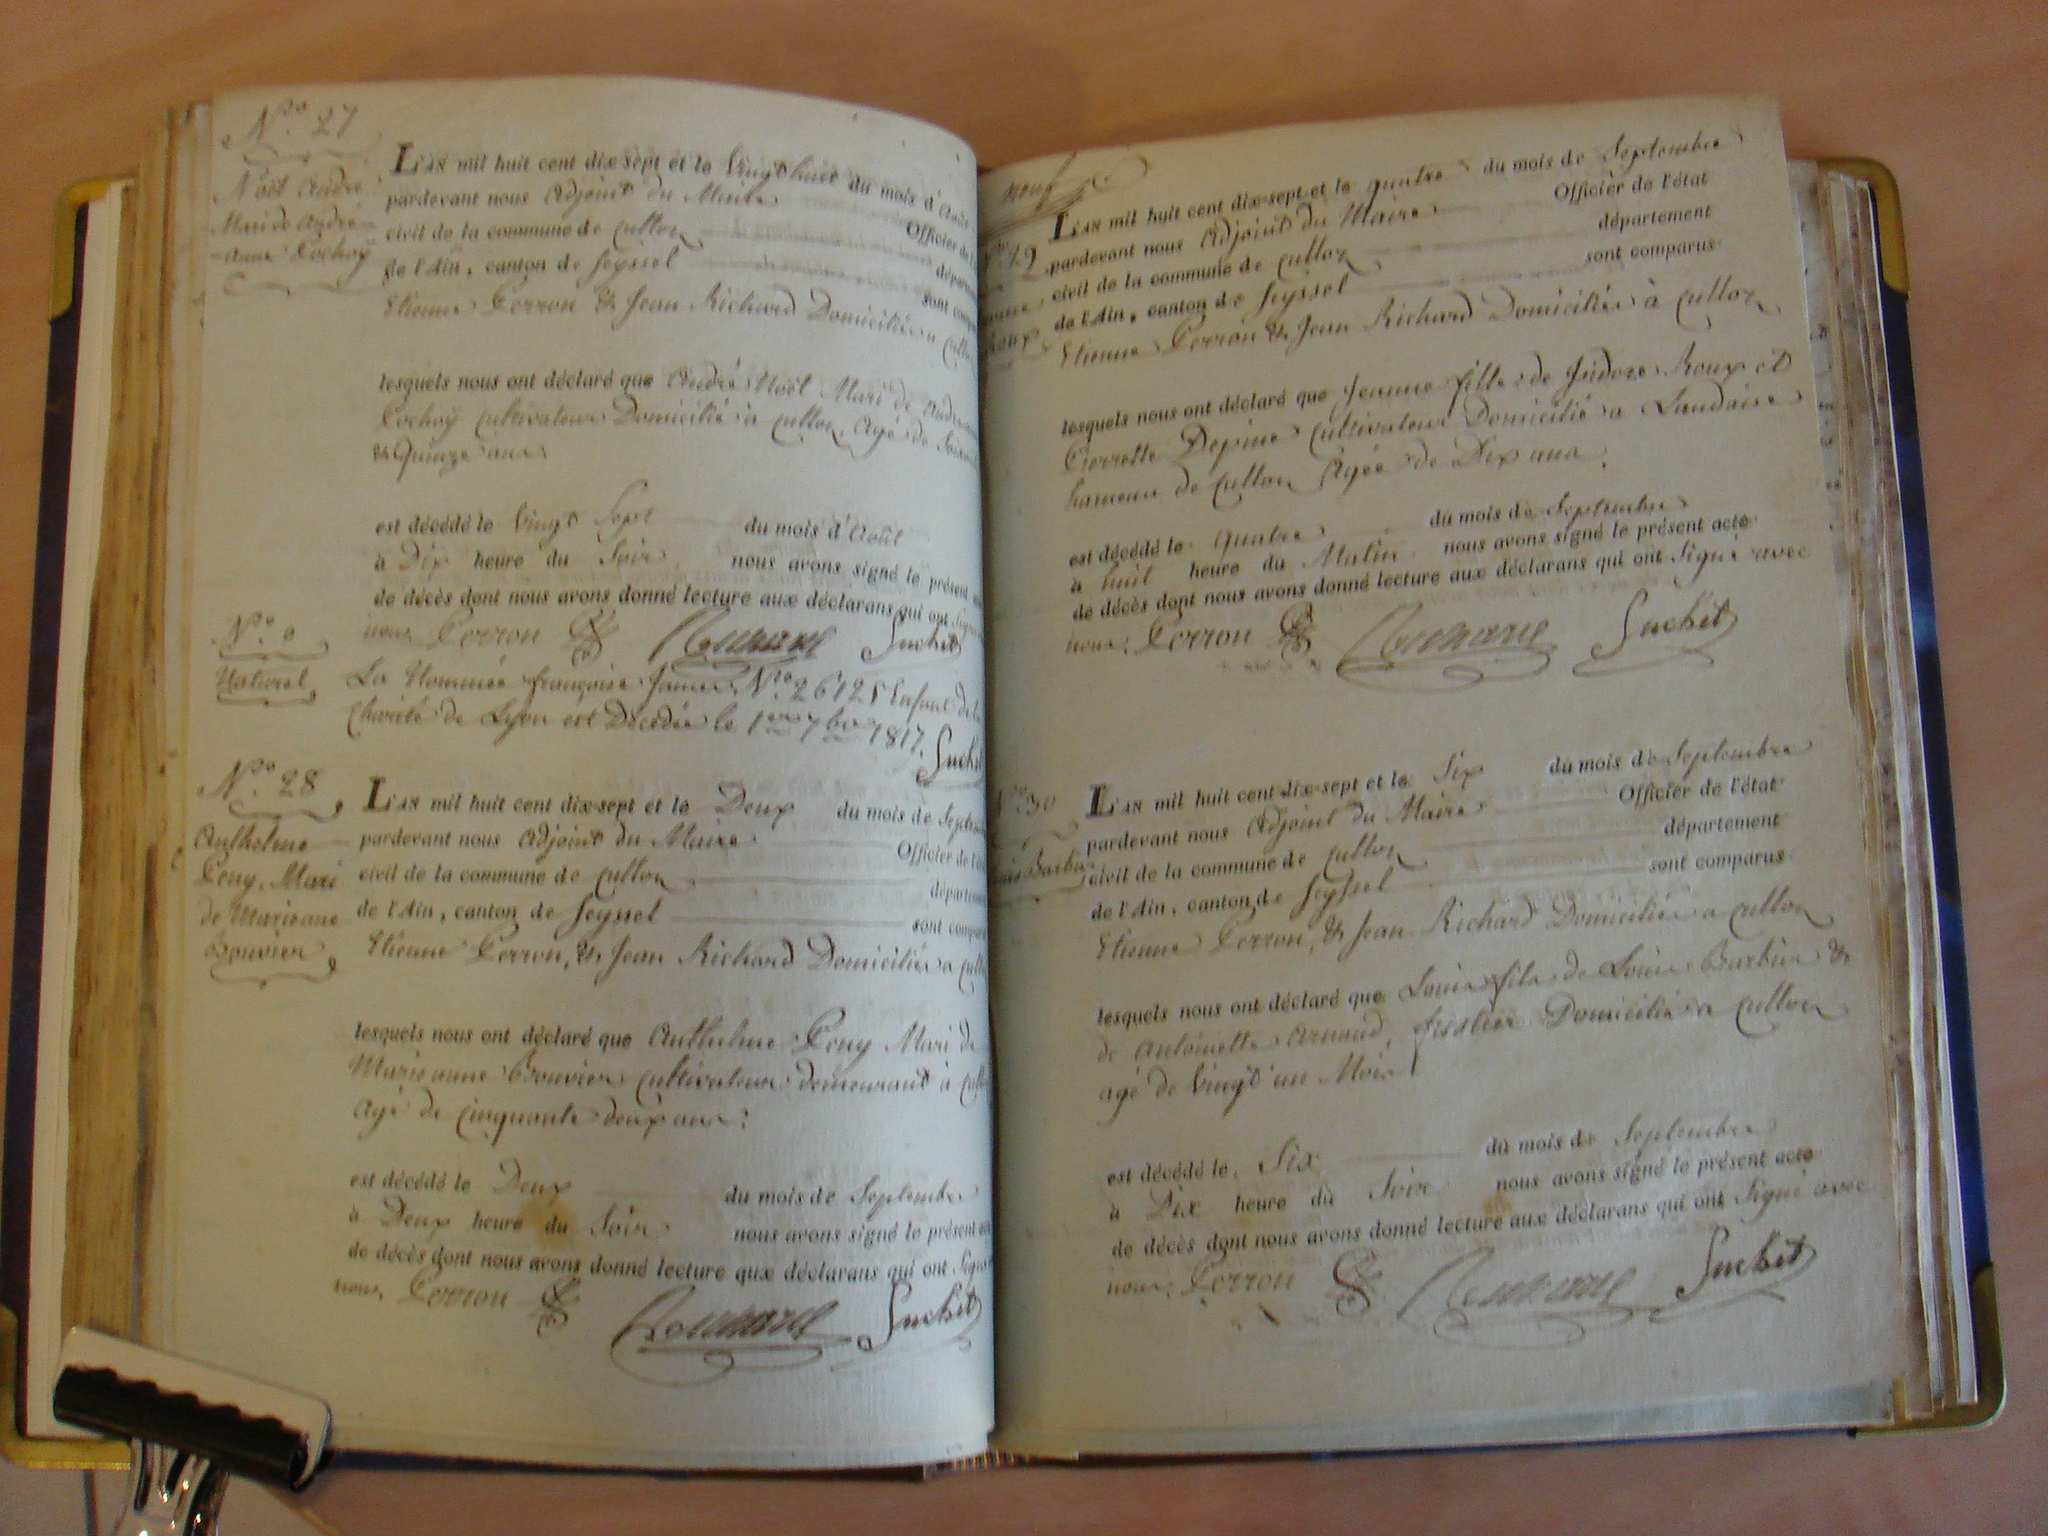 N.ro 27
Noël André
Mari de André
anne Cochoy
L'an mil huit cent dix-sept et le vingt huit du mois d'Août
pardevant nous Adjoint du Maire
Officier de l'é
civil de la commune de Culloz
départem
de l'Ain, canton de Seyssel
sont comp
Etienne Perron & Jean Richard Domiciliés a Cullo
lesquels nous ont déclaré que André Noël Mari de Andréanne
Cochoy Cultivateur Domicilié à Culloz, Agé de
& Quinze ans
est décédé le Vingt Sept du mois d'Août
à Dix heure du Soir nous avons signé le présent
de décès dont nous avons donné lecture aux déclarans qui ont Signé
nous Perron Suchet
N.ro 0
Naturel
La Nommée françoise N.ro 26125 Enfant de la
Charité de Lyon est Décédée le 1er 7bre 1817.
Suchet
N.ro 28
Anthelme
Peny, Mari
de Marieane
Bouvier
L'an mil huit cent dix-sept et le Deux du mois de Septem
pardevant nous Adjoint du Maire
Officier de l'é
civil de la commune de Culloz
départem
de l'Ain, canton de Seyssel
sont compa
Etienne Perron, & Jean Richard Domiciliés a Cull
lesquels nous ont déclaré que Anthelme Peny Mari de
Marieanne Bouvier Cultivateur demeurant à Cull
Agé de Cinquante deux ans
est décédé le Deux du mois de Septembre
à Deux heure du Soir nous avons signé le présent ac
de décès dont nous avons donné lecture aux déclarans qui ont Signé
nous, Perron Suchet
neuf
29
L'an mil huit cent dix-sept et le quatre du mois de Septembre
pardevant nous Adjoint du Maire Officier de l'état
civil de la commune de Culloz département
de l'Ain, canton de Seyssel sont comparus
Etienne Perron & Jean Richard Domiciliés à Culloz
lesquels nous ont déclaré que Jeanne fille de Isidore Roux et
Pierrette Depine Cultivateur Domicilié a Landaise
hameau de Culloz Agée de Dix ans.
est décédé le quatre du mois de Septembre
à huit heure du Matin nous avons signé le présent acte
de décès dont nous avons donné lecture aux déclarans qui ont Signé avec
nous: Perron Suchet
30
Barbier
L'an mil huit cent dix-sept et le Six du mois de Septembre
pardevant nous Adjoint du Maire Officier de l'état
civil de la commune de Culloz département
de l'Ain, canton de Seyssel sont comparus
Etienne Perron, & Jean Richard Domiciliés a Culloz
lesquels nous ont déclaré que Louis fils de Louis Barbier &
de Antoinette Arnaud, Domicilié a Culloz
agé de Vingt un Mois
est décédé le Six du mois de Septembre
à Dix heure du Soir nous avons signé le présent acte
de décès dont nous avons donné lecture aux déclarans qui ont Signé avec
nous: Perron Suchet